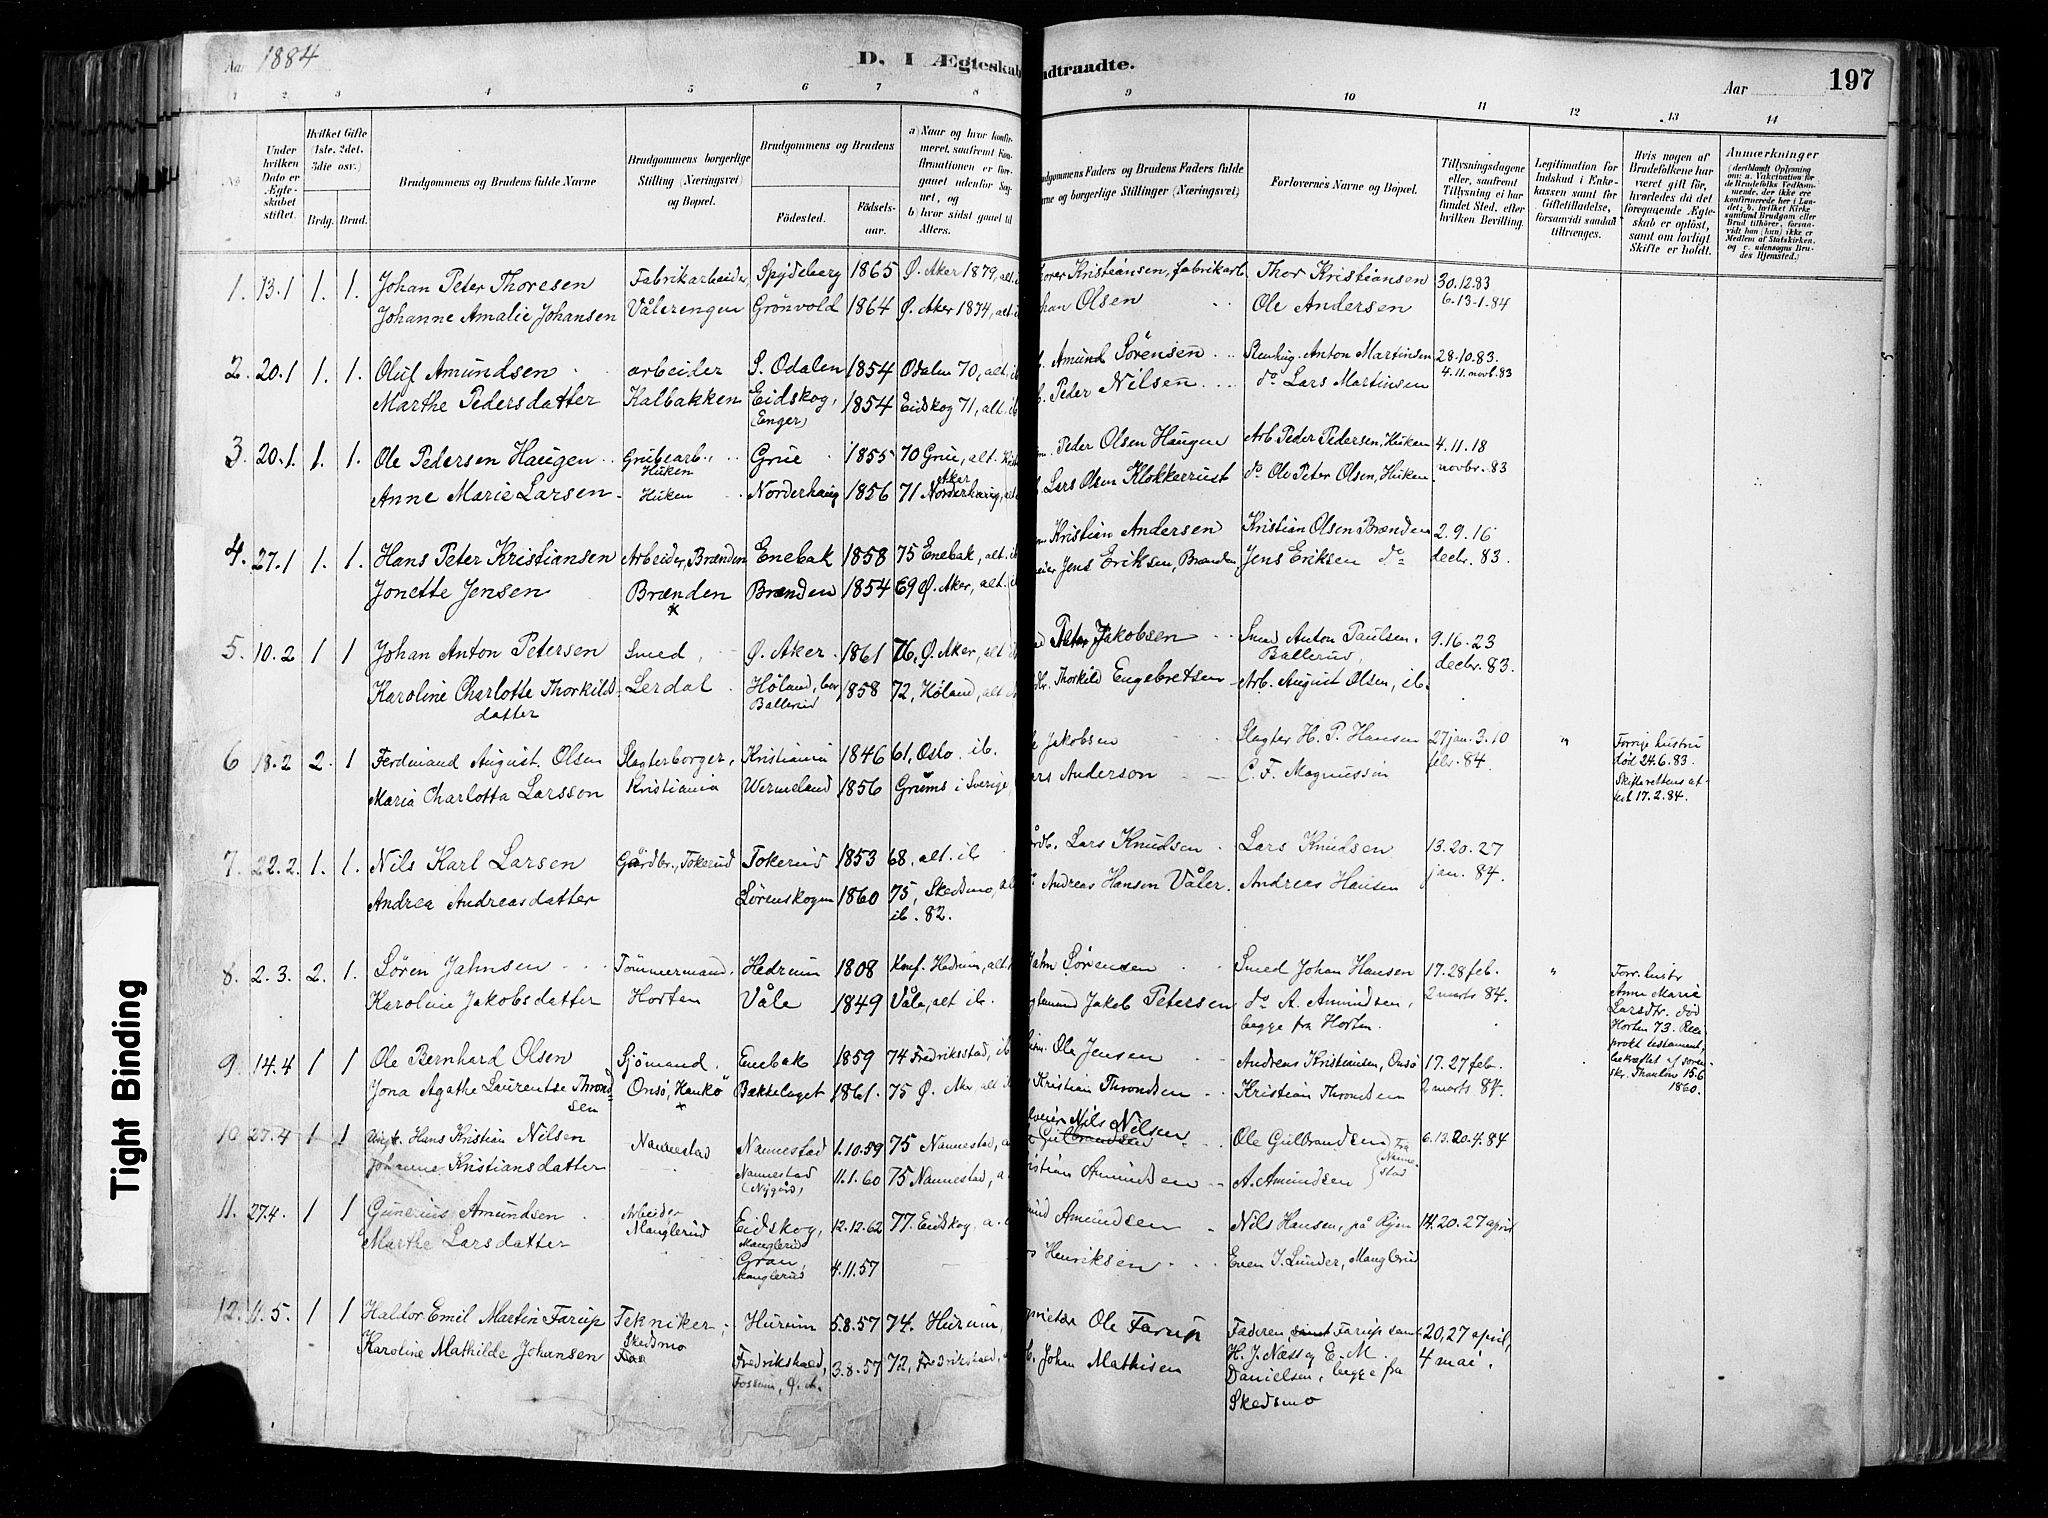 Aar 1884
D. I Ægteskab
ndtraadte.
Aar
197
1 2 3 4 5 6 7 8
9 10 11 12 13 14
No
Under hvilken Dato er Ægteskabet stiftet.
Hvilket Gifte (1ste. 2det. 3die osv.)
Brdg. Brud.
Brudgommens og Brudens fulde Navne
Brudgommens borgerlige Stilling (Næringsvei) og Bopæl.
Brudgommens og Brudens
Fødested.
Fødselsaar.
a) Naar og hvor
b) hvor sidst gaaet til Alters.
udgommens Faders og Brudens Faders fulde
vne og borgerlige Stillinger (Næringsvei)
Forlovernes Navne og Bopæl.
Tillysningsdagene eller, saafremt Tillysning ei har fundet Sted, efter hvilken Bevilling.
Legitimation for Indskud i Enkekassen samt for Giftetilladelse, forsaavidt saadan tiltrænges.
Hvis nogen af Brudefolkene har været gift før, hvorledes da det foregaaende Ægteskab er opløst, samt om lovligt Skifte er holdt.
Anmærkninger
(deriblandt Oplysning om: a. Vaccination for de Brudefolks Vedkommende, der ikke ere konfirmerede her i Landet; b. hvilket Kirkesamfund Brudgom eller Brud tilhører, forsaavidt han (hun) ikke er Medlem af Statskirken, og c. udensogns Brudes Hjemsted.)
1. 13.1 1. 1. Johan Peter Thoresen Fabrikarbeider, Spydeberg 1865 Ø. Aker 1879, alt. i
horer Kristiansen, fabrikarb. Thor Kristiansen 30.12.83
Johanne Amalie Johansen Vålerengen Grönvold 1864 Ø. Aker 1874, alt. i
han Olsen Ole Andersen 6.13-1.84
2. 20.1 1. 1. Oluf Amundsen arbeider S. Odalen 1854 Odalen 70, alt. ib
Amund Sörensen Anton Martinsen 28.10.83.
Marthe Pedersdatter Kalbakken Eidskog, (Enger) 1854 Eidskog 71, alt. ib
Peder Nilsen do Lars Martinsen 4.11. novb. 83
3. 20.1. 1. 1. Ole Pedersen Haugen Grubearb., Huken Grue 1855 70 Grue, alt.
Peder Olsen Haugen Arb. Peder Pedersen, Huken 4.11.18
Anne Marie Larsen Huken Norderhaug 1856 71 Norderhaug,
Lars Olsen Klokkerrust do Ole Peter Olsen, Huken. novbr. 83
4. 27.1 1. 1. Hans Peter Kristiansen Arbeider, Brænden Enebak 1858 75 Enebak, alt. ib
Kristian Andersen Kristian Olsen Brænden 2.9.16
Jonette Jensen Brænden x Brænden 1854 69 Ø. Aker, alt.
Jens Eriksen, Brænden Jens Eriksen do decbr. 83.
5. 10.2 1 1 Johan Anton Petersen Smed, Ø. Aker 1861 76, Ø. Aker, alt
Peter Jakobsen Smed Anton Paulsen, Ballerud, 9.16.23
Karoline Charlotte Thorkildsdatter Lerdal Höland, bor Ballerud 1858 72, Höland, alt
br. Thorkild Engebretsen Arb. August Olsen, ib. decbr. 83.
6 18.2 2. 1 Ferdinand August Olsen Slagterborger, Kristiania 1846 61, Oslo. ib.
Jakobsen Slagter H. P. Hansen 27 jan. 3.10 " Forrige hustru
død 24.6.83.
Maria Charlotta Larsson Kristiania Wermeland 1856 Grums i Sverige,
ars Anderson C. F. Magnusson febr. 84. Skifterettens attest 17.2.84.
7. 22.2. 1. 1. Nils Karl Larsen Gårdbr., Tokerud Tokerud 1853 68, alt. ib
årdb. Lars Knudsen Lars Knudsen 13.20.27
Andrea Andreasdatter Lörenskogen 1860 75, Skedsmo, al ib. 82.
Andreas Hansen Våler. Andreas Hansen jan. 84.
8. 2.3. 2. 1. Sören Jahnsen Tömmermand, Hedrum 1808 Konf. Hedrum, alt.
Jahn Sörensen Smed Johan Hansen 17.28 feb. " Forr. hustr
Anne Marie
Karoline Jakobsdatter Horten Våle 1849 Våle, alt ib.
Jakob Petersen do A. Amundsen, begge fra Horten. 2 marts 84.
Larsdtr. död
Horten 73. Reci
prokt testament,
bekræftet af soren
skr. Thaulow 15.6
1860.
9. 14.4 1 1 Ole Bernhard Olsen Sjömand. Enebak 1859 74 Fredriksstad, ib
Ole Jensen Andreas Kristiansen, Onsö 17.27 feb.
Jona Agathe Laurentse Throndsen Onsö, Hankö x Bækkelaget 1861. 75 Ø. Aker, alt
Kristian Throndsen Kristian Throndsen 2 marts 84.
10 27.4 1 1 Ungk. Hans Kristian Nilsen Nannestad Nannestad 1.10.59 75 Nannestad, a.
Nils Nilsen
Gulbrandsen Ole Gulbrandsen Fra Nannestad 6.13.20.4.84
Johanne Kristiansdatter Nannestad (Nygård) 11.1.60 75 Nannestad, a.
istian Amundsen A. Amundsen
11. 27.4. 1 1 Gunerius Amundsen Arbeider Manglerud Eidskog, Manglerud 12.12.62 77. Eidskog, a.
und Amundsen Nils Hansen, på Ryen 14.20.27 april
Marthe Larsdatter Gran Manglerud 4.11.57
Henriksen Even J. Lunder, Manglerud
12. 11.5. 1 1 Haldor Emil Martin Farup Tekniker, Skedsmo Hurum 5.8.57 74. Hurum,
Ole Farup Faderen, samt Farup samt 20,27 april,
Karoline Mathilde Johansen Fredrikshald, Fossum, Ø. A. 3.8.57 72, Fredrikshald,
Johan Mathisen H. J. Næss og E. M. Danielsen, begge fra Skedsmo 4 mai.
Tight Binding